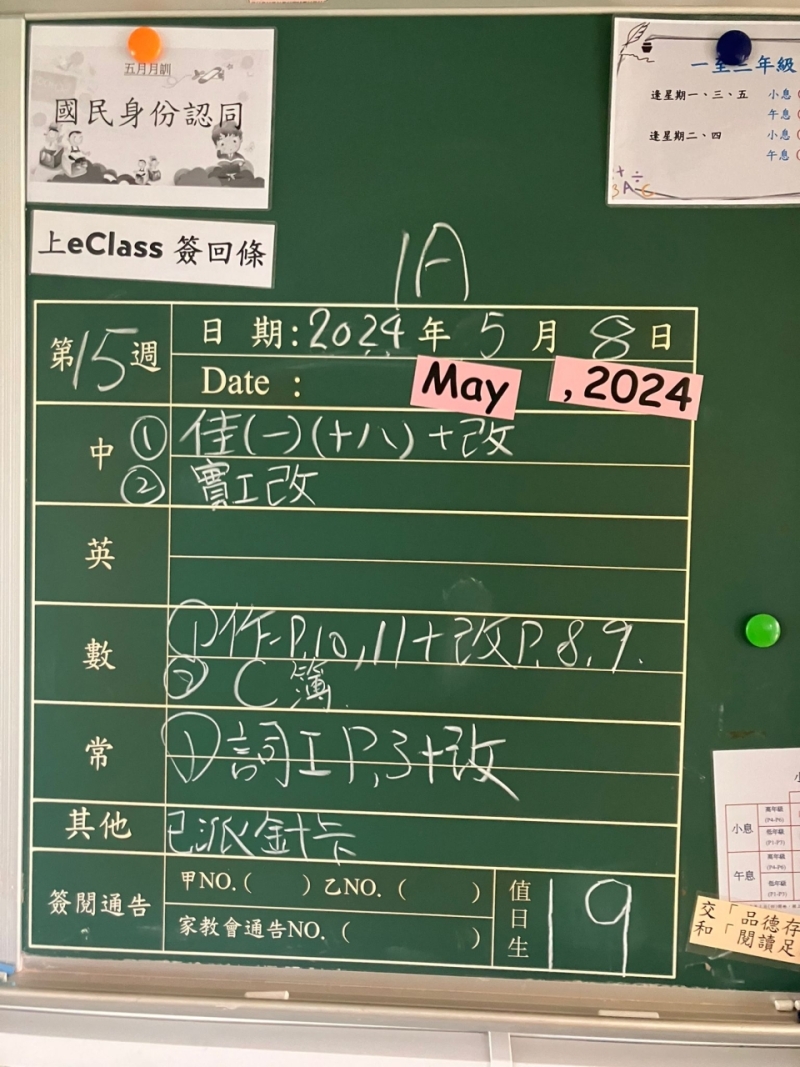 五月月訓
國民身份認同
一至三年級
逢星期一、三、五 小息(
午息(
逢星期二、四 小息(
午息(
上eClass 簽回條
1A
第15週
日 期:2024年5月8日
Date : May , 2024
中 ① 佳(一)(十八)+改
② 實工改
英
數 ① 作=P.10,11+改P.8,9.
② C簿
常 ① 詞工P.3+改
其他 已派針卡
簽閱通告 甲NO.( ) 乙NO.( )
家教會通告NO.( )
值日生 19
小息
高年級
(P4-P6)
低年級
午息
高年級
(P4-P6)
低年級
交「品德存
和「閱讀足